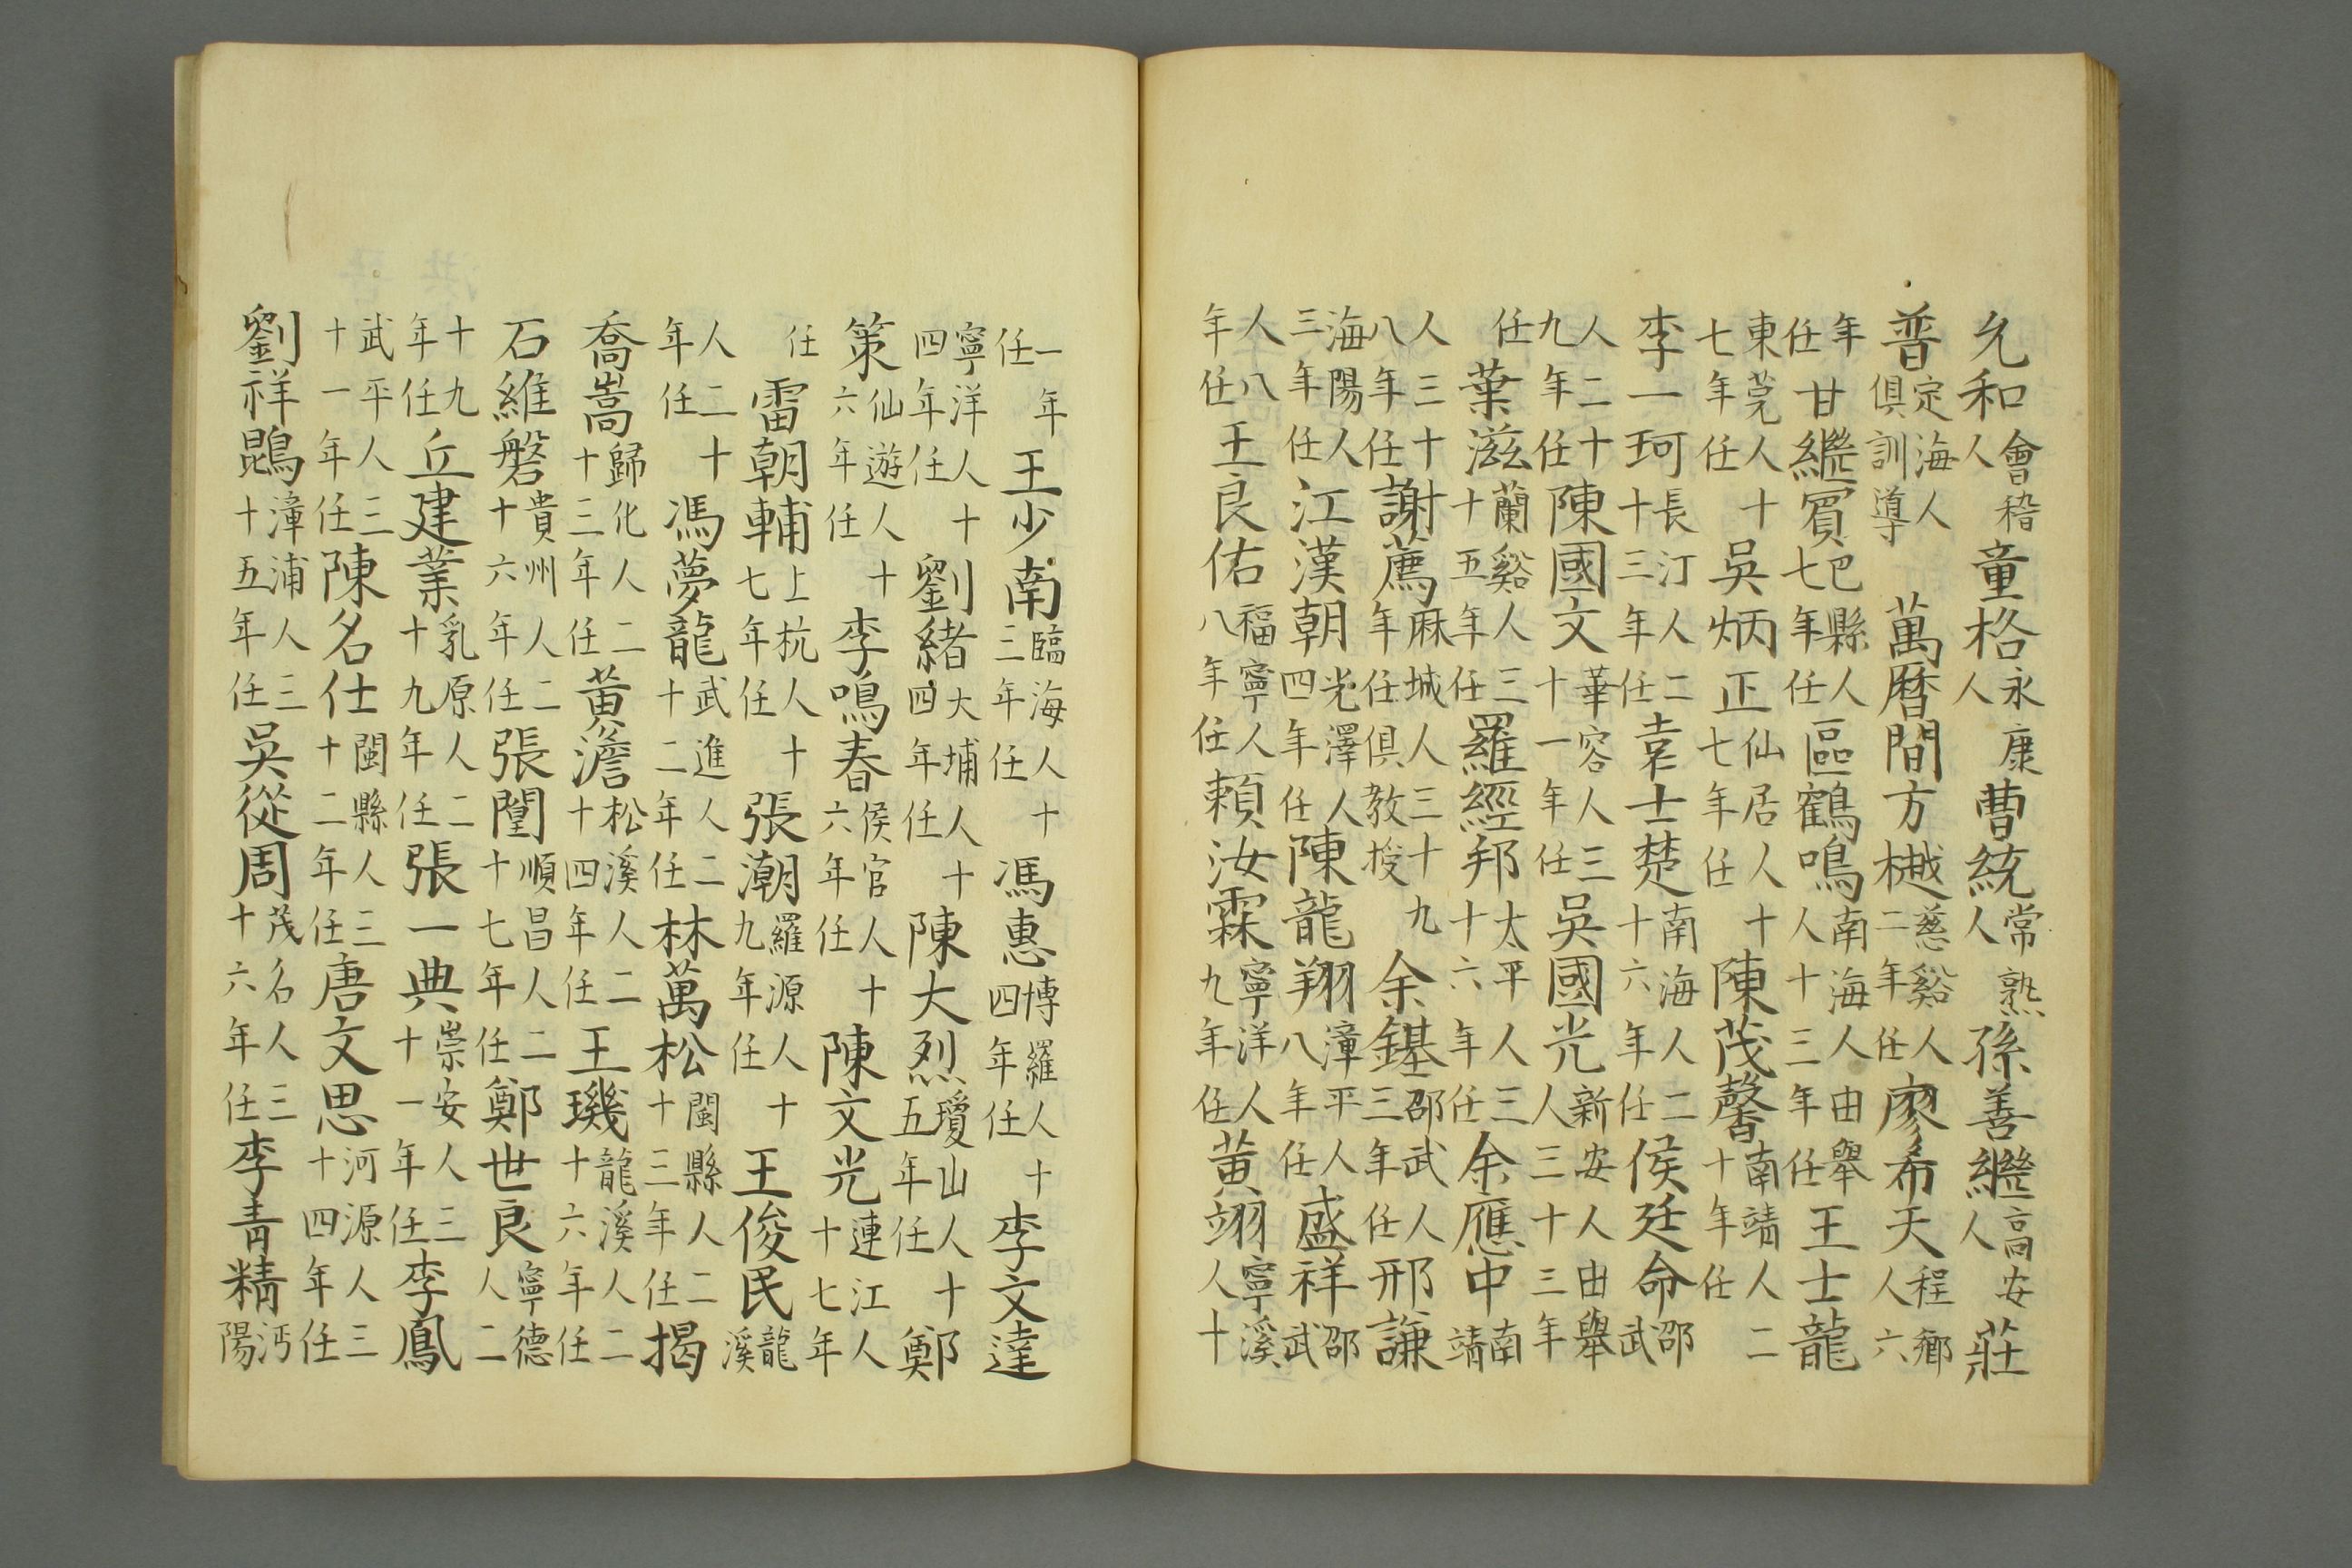 允和會稽人童格永康人曹統常熟人孫善繼高安人莊
普定海人俱訓導萬曆間方樾慈谿人二年任廖希天程鄉人六
年任甘繼賔巴縣人七年任區鶴鳴南海人由舉人十三年任王士龍
東莞人十七年任吳炳正仙居人十七年任陳茂馨南靖人二十年任
李一珂長汀人二十三年任袁士楚南海人二十六年任侯廷命邵武
人二十九年任陳國文華容人三十一年任吳國光新安人由舉人三十三年
任葉滋蘭谿人三十五年任羅經邦太平人三十六年任余應中南靖
人三十八年任謝薦麻城人三十九年任俱教授余鍖邵武人三年任邢謙
海陽人三年任江漢朝光澤人四年任陳龍翔漳平人八年任盛祥邵武
人八年任王良佑福寧人八年任賴汝霖寧洋人九年任黃翊寧溪人十
一年任王少南臨海人十三年任馮惠博羅人十四年任李文達
寧洋人十四年任劉緒大埔人十四年任陳大烈瓊山人十五年任鄭
策仙遊人十六年任李鳴春侯官人十六年任陳文光連江人十七年
任雷朝輔上杭人十七年任張潮羅源人十九年任王俊民龍溪
人二十年任馮夢龍武進人二十二年任林萬松閩縣人二十三年任揭
喬嵩歸化人二十三年任黃澹松溪人二十四年任王璣龍溪人二十六年任
石維磐貴州人二十六年任張順昌人二十七年任鄭世良寧德人二
十九年任丘建業乳原人二十九年任張一典崇安人三十一年任李鳳
武平人三十一年任陳名仕閩縣人三十二年任唐文思河源人三十四年任
劉祥鵾漳浦人三十五年任吳從周茂名人三十六年任李青精沔陽